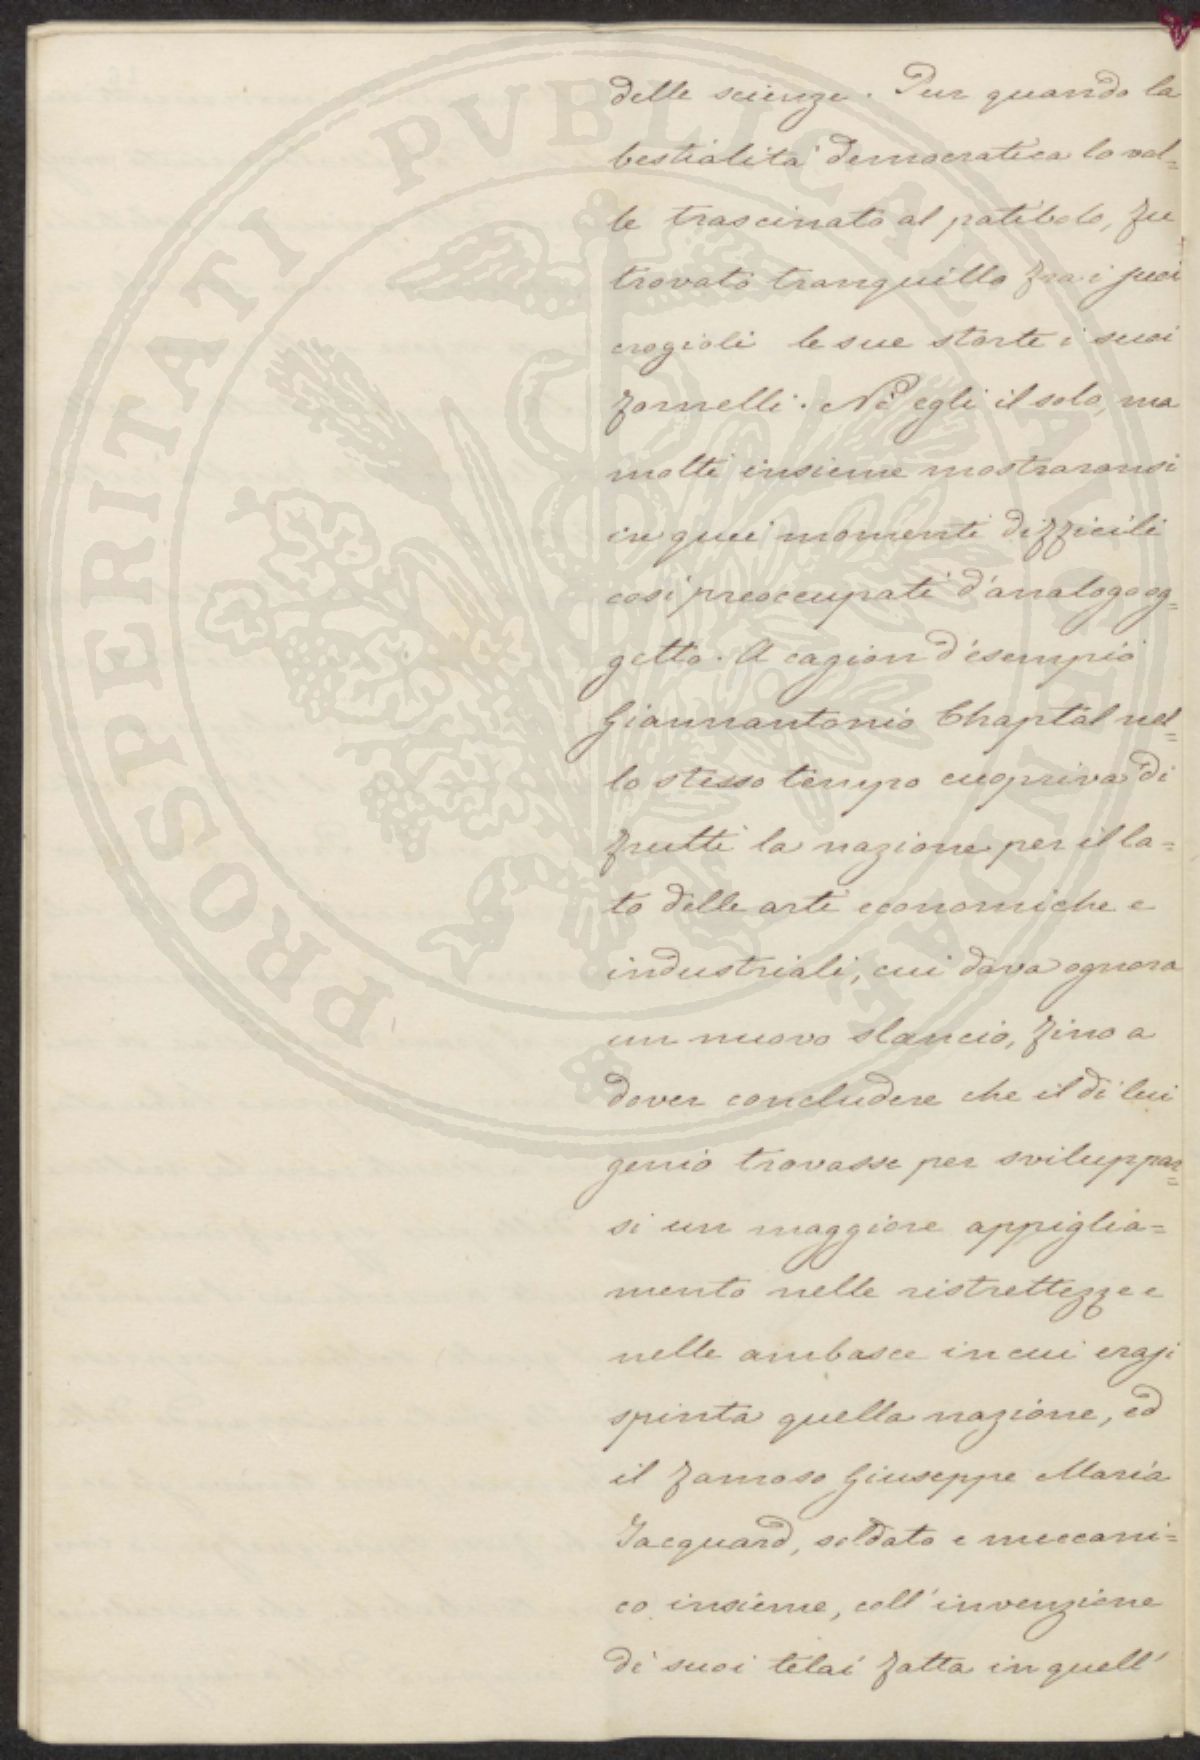 delle scienze. Pur quando la
bestialità democratica lo vol=
le trascinato al patibolo, fu
trovato tranquillo fra i suoi
crogioli le sue storte i suoi
fornelli. Nè egli il solo, ma
molti insieme mostraronsi
in quei momenti difficili
così preoccupati d'analogo og=
getto. A cagion d'esempio
Giannantonio Chaptal nel=
lo stesso tempo cuopriva di
frutti la nazione per il la=
to delle arti economiche e
industriali, cui dava ognora
un nuovo slancio, fino a
dover concludere che il di lui
genio trovasse per sviluppar=
si un maggiore appiglia=
mento nelle ristrettezze e
nelle ambasce in cui erasi
spinta quella nazione, ed
il famoso Giuseppe Maria
Jacquard, soldato e meccani=
co insieme, coll'invenzione
di suoi telai fatta in quell'
PROSPERITATI PVBLICAE AVGENDAE